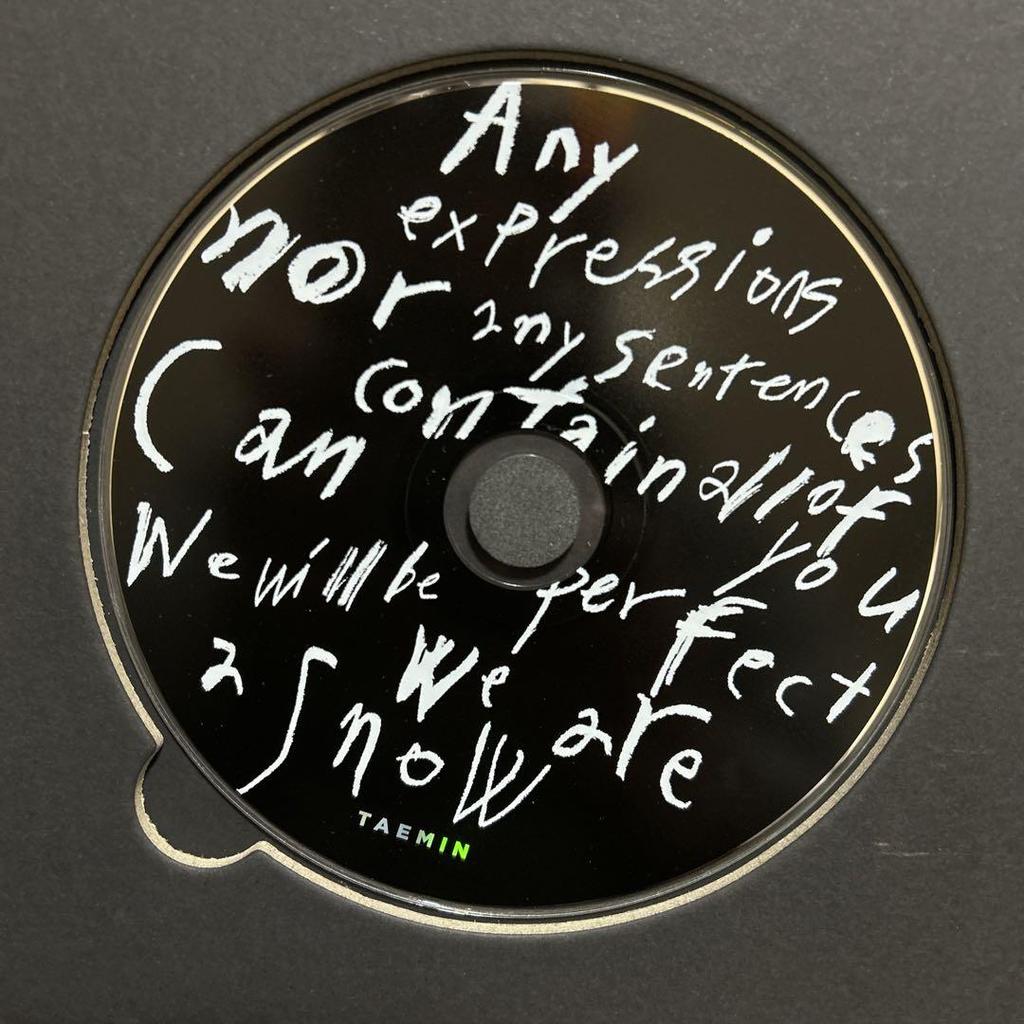 Any
expressions
nor any sentences
Can contain all of
you
We will be perfect
as we are
now
TAEMIN